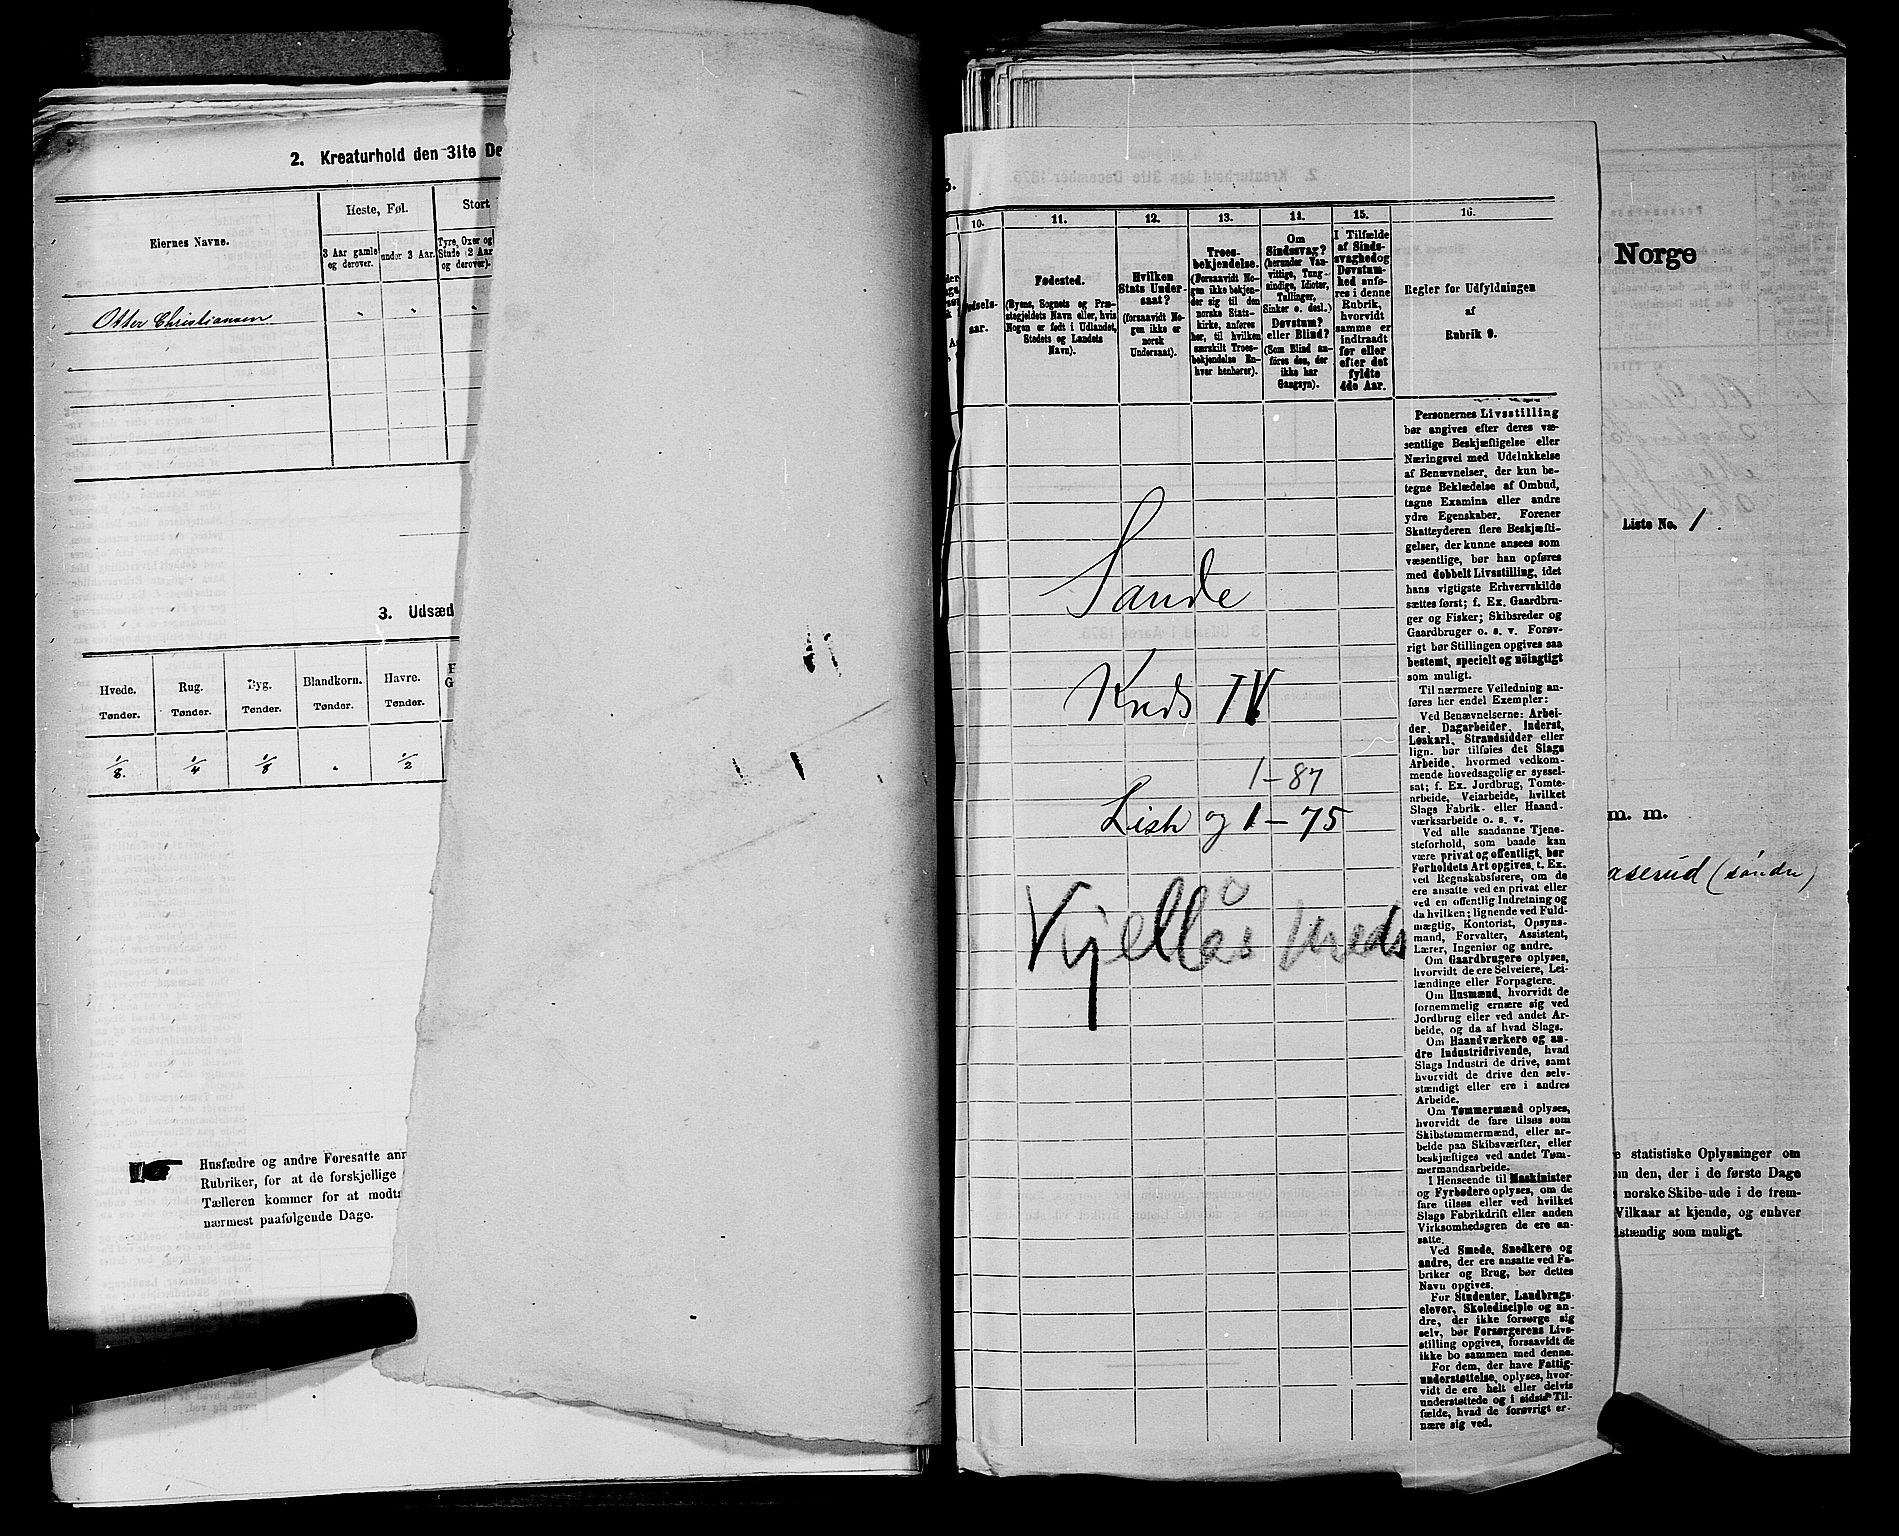 2. Kreaturhold den 31te De
Eiernes Navne.
Heste, Føl.
Stort
3 Aar gamle og derover.
under 3 Aar.
Tyre, Oxer og Stude (2 Aar og derover).
Otter Christiansen
3. Udsæd
Hvede.
Rug.
Byg.
Blandkorn.
Havre.
Tønder.
Tønder.
Tønder.
Tønder.
Tønder.
1/8.
1/4
1/8
1/2
Husfædre og andre Foresatte ann
Rubriker, for at de forskjellige
Tælleren kommer for at modta
nærmest paafølgende Dage.
10.
11.
12.
13.
14.
15.
16.
dsels-
aar.
Fødested.
(Byens, Sognets og Præ-
stegjeldets Navn eller, hvis
Nogen er født i Udlandet,
Stedets og Landets
Navn).
Hvilken
Stats Under-
saat?
(forsaavidt No-
gen ikke er
norsk
Undersaat).
Troes-
bekjendelse.
(Forsaavidt No-
gen ikke bekjen-
der sig til den
norske Stats-
kirke, anføres
her, til hvilken
særskilt Troes-
bekjendelse En-
hver henhører).
Om
Sindssvag?
(herunder Van-
vittige, Tung-
sindige, Idioter,
Tullinger,
Sinker o. desl.)
Døvstum?
eller Blind?
(Som Blind an-
føres den, der
ikke har
Gangsyn).
I Tilfælde
af Sinds-
svaghed og
Døvstum-
hed anfø-
res i denne
Rubrik,
hvorvidt
samme er
indtraadt
før eller
efter det
fyldte
4de Aar.
Regler for Udfyldningen
af
Rubrik 9.
Personernes Livsstilling
bør angives efter deres væ-
sentlige Beskjæftigelse eller
Næringsvei med Udelukkelse
af Benævnelser, der kun be-
tegne Beklædelse af Ombud,
tagne Examina eller andre
ydre Egenskaber. Forener
Skatteyderen flere Beskjæfti-
gelser, der kunne ansees som
væsentlige, bør han opføres
med dobbelt Livsstilling, idet
hans vigtigste Erhvervskilde
sættes først; f. Ex. Gaardbru-
ger og Fisker; Skibsreder og
Gaardbruger o. s. v. Forøv-
rigt bør Stillingen opgives saa
bestemt, specielt og nøiagtigt
som muligt.
Til nærmere Veiledning an-
føres her endel Exempler:
Ved Benævnelserne: Arbei-
der, Dagarbeider, Inderst,
Løskarl, Strandsidder eller
lign. bør tilføies det Slags
Arbeide, hvormed vedkom-
mende hovedsagelig er syssel-
sat; f. Ex. Jordbrug, Tomte-
arbeide, Veiarbeide, hvilket
Slags Fabrik- eller Haand-
værksarbeide o. s. v.
Ved alle saadanne Tjene-
steforhold, som baade kan
være privat og offentligt, bør
Forholdets Art opgives, t. Ex.
ved Regnskabsførere, om de
ere ansatte ved en privat eller
ved en offentlig Indretning og
da hvilken; lignende ved Fuld-
mægtig, Kontorist, Opsyns-
mand, Forvalter, Assistent,
Lærer, Ingeniør og andre.
Om Gaardbrugere oplyses,
hvorvidt de ere Selveiere, Lei-
lændinge eller Forpagtere.
Om Husmænd, hvorvidt de
fornemmelig ernære sig ved
Jordbrug eller ved andet Ar-
beide, og da af hvad Slags.
Om Haandværkere og an-
dre Industridrivende, hvad
Slags Industri de drive, samt
hvorvidt de drive den selv-
stændigt eller ere i andres
Arbeide.
Om Tømmermænd oplyses,
hvorvidt de fare tilsøs som
Skibstømmermænd, eller ar-
beide paa Skibsværfter, eller
beskjæftiges ved andet Tøm-
mermandsarbeide.
I Henseende til Maskinister
og Fyrbødere oplyses, om de
fare tilsøs eller ved hvilket
Slags Fabrikdrift eller anden
Virksomhedsgren de ere an-
satte.
Ved Smede, Snedkere og
andre, der ere ansatte ved Fa-
briker og Brug, bør dettes
Navn opgives.
For Studenter, Landbrugs-
elever, Skoledisciple og an-
dre, der ikke forsørge sig
selv, bør Forsørgerens Livs-
stilling opgives, forsaavidt de
ikke bo sammen med denne.
For dem, der have Fattig-
understøttelse, oplyses, hvor-
vidt de ere helt eller delvis
understøttede og i sidste Til-
fælde, hvad de forøvrigt er-
nære sig ved.
Sande
Kreds IV
1-87
og 1-75
Kjellås
Norge
Liste No. 1.
m. m.
aserud (søndre)
e statistiske Oplysninger om
n den, der i de første Dage
norske Skibe-ude i de frem-
Vilkaar at kjende, og enhver
lstændig som muligt.